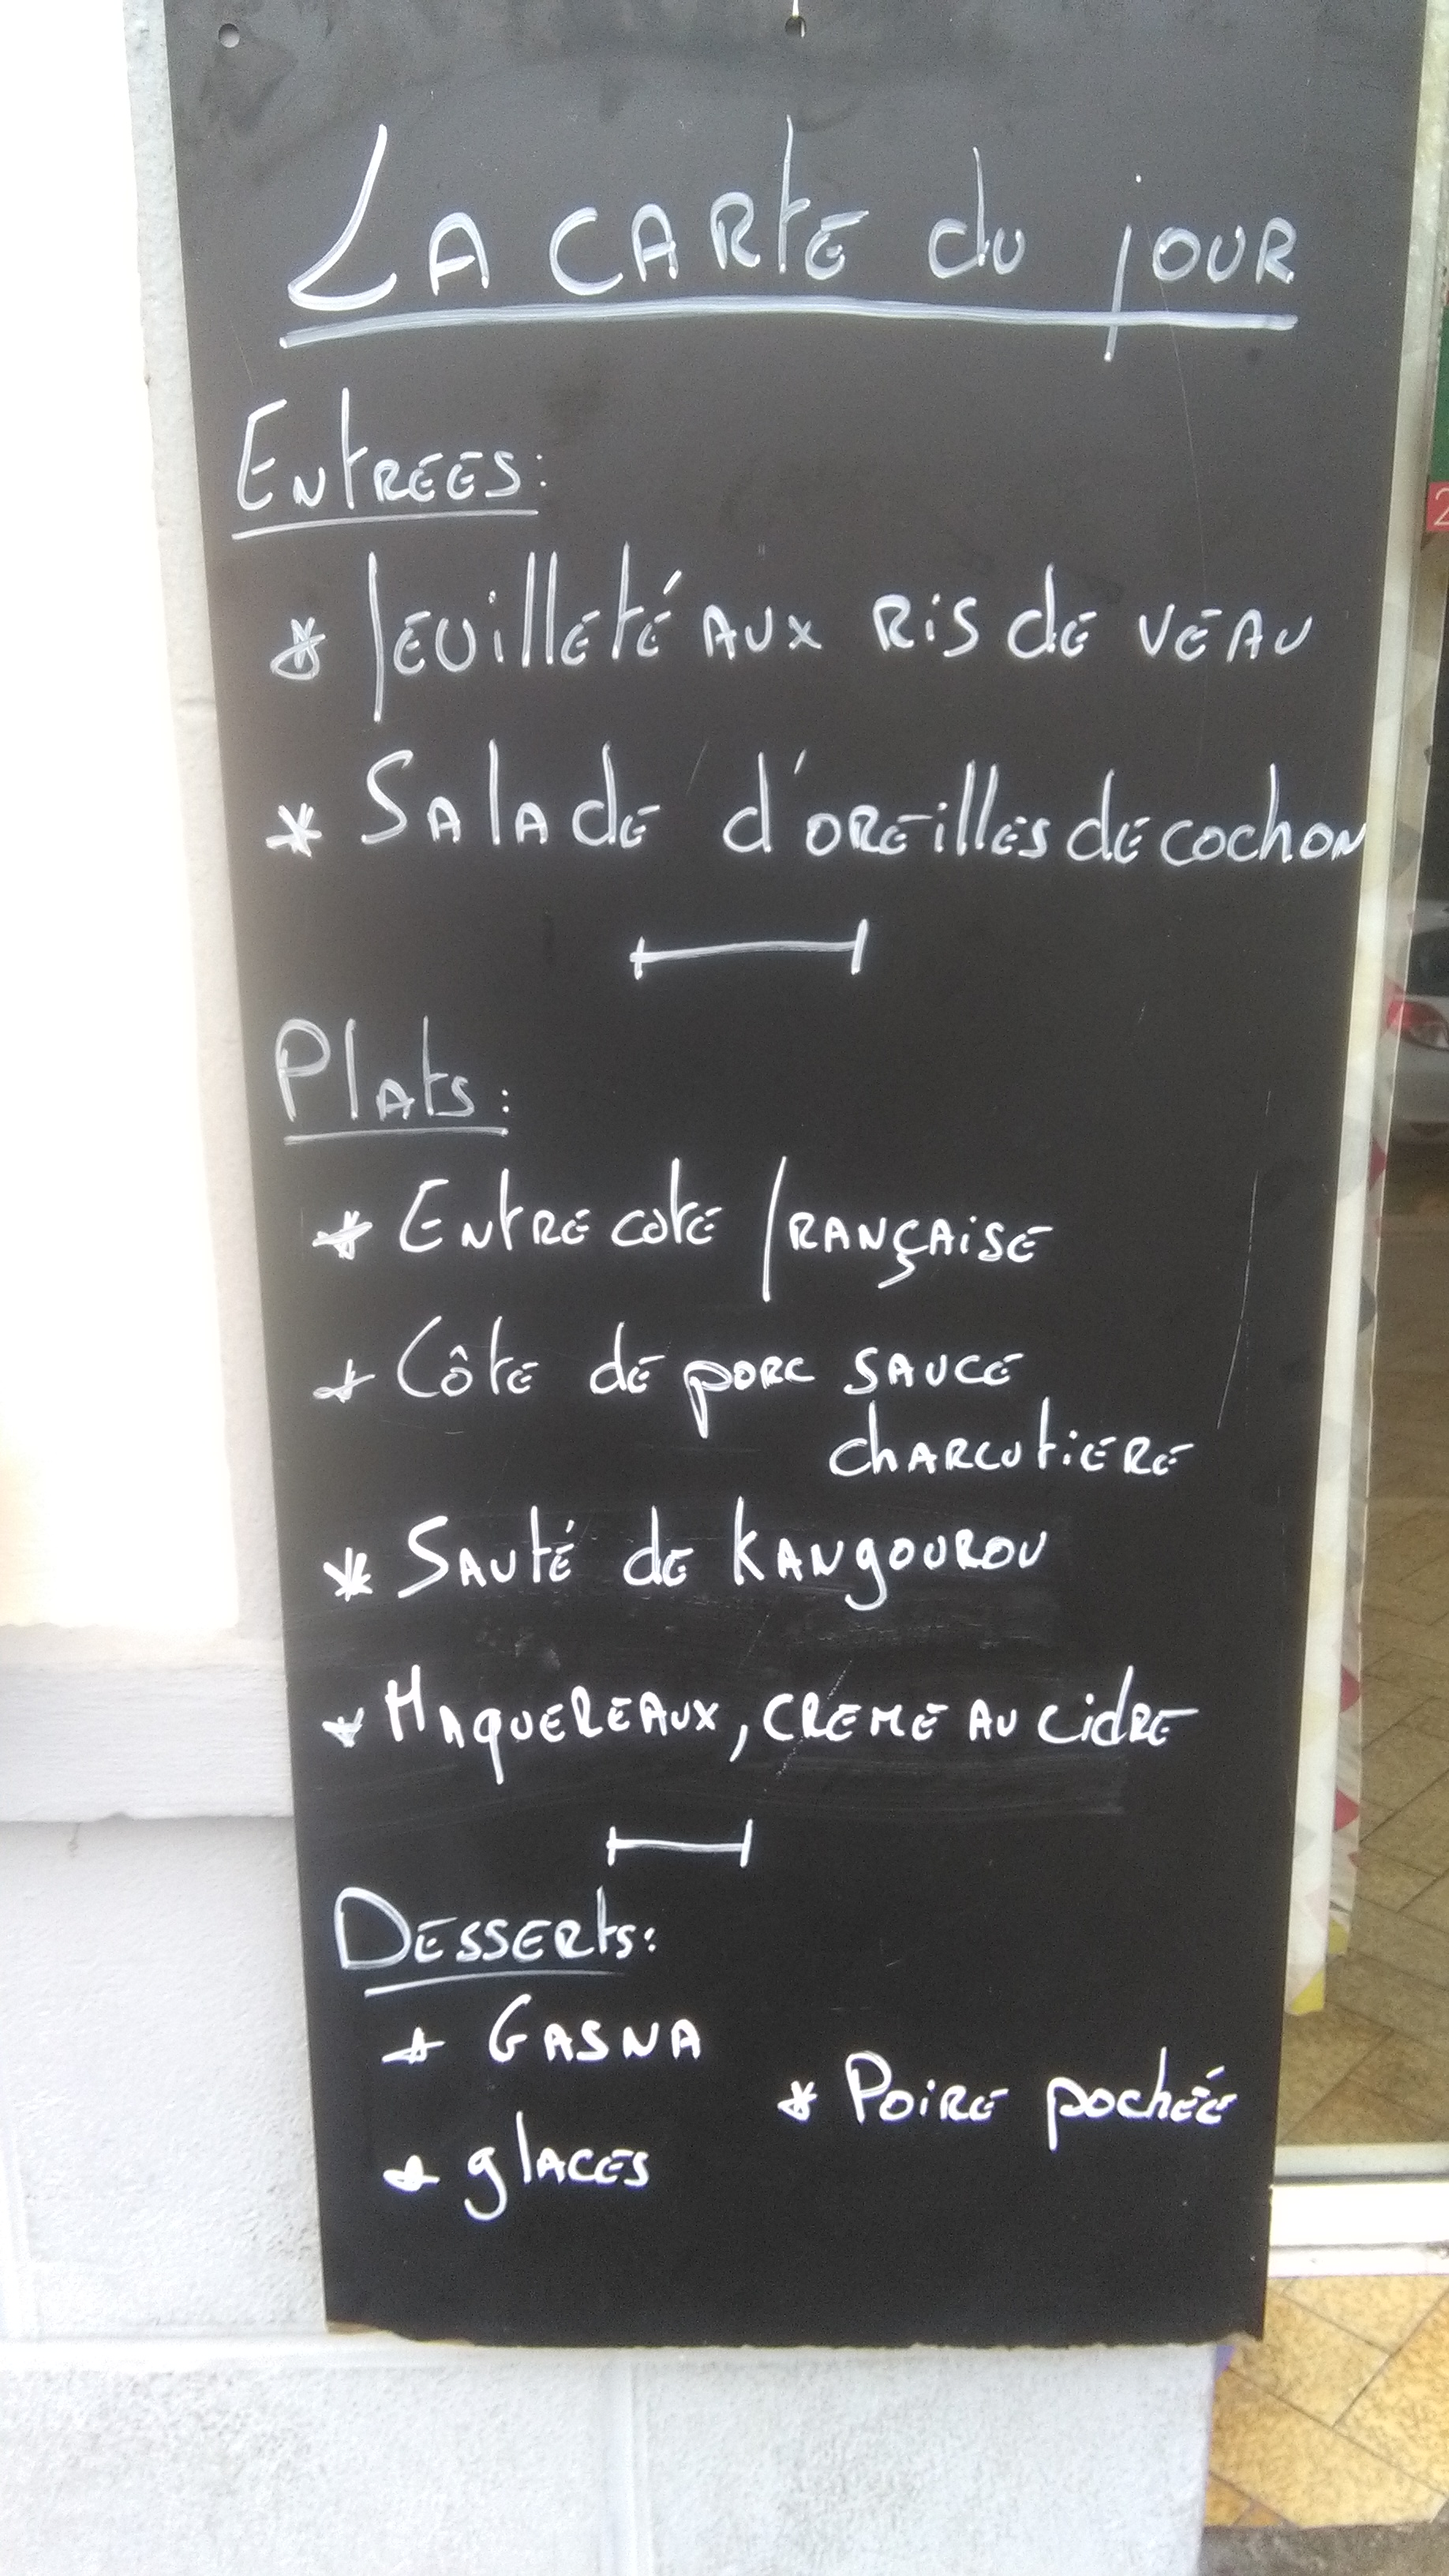 La carte du jour
Entrees:
* feuilleté aux ris de veau
* Salade d'oreilles de cochon
Plats:
* Entrecote française
* Côte de porc sauce
charcutiere
* Sauté de kangourou
* Maquereaux, creme au cidre
Desserts:
* Gasna
* Poire pochée
* glaces
2